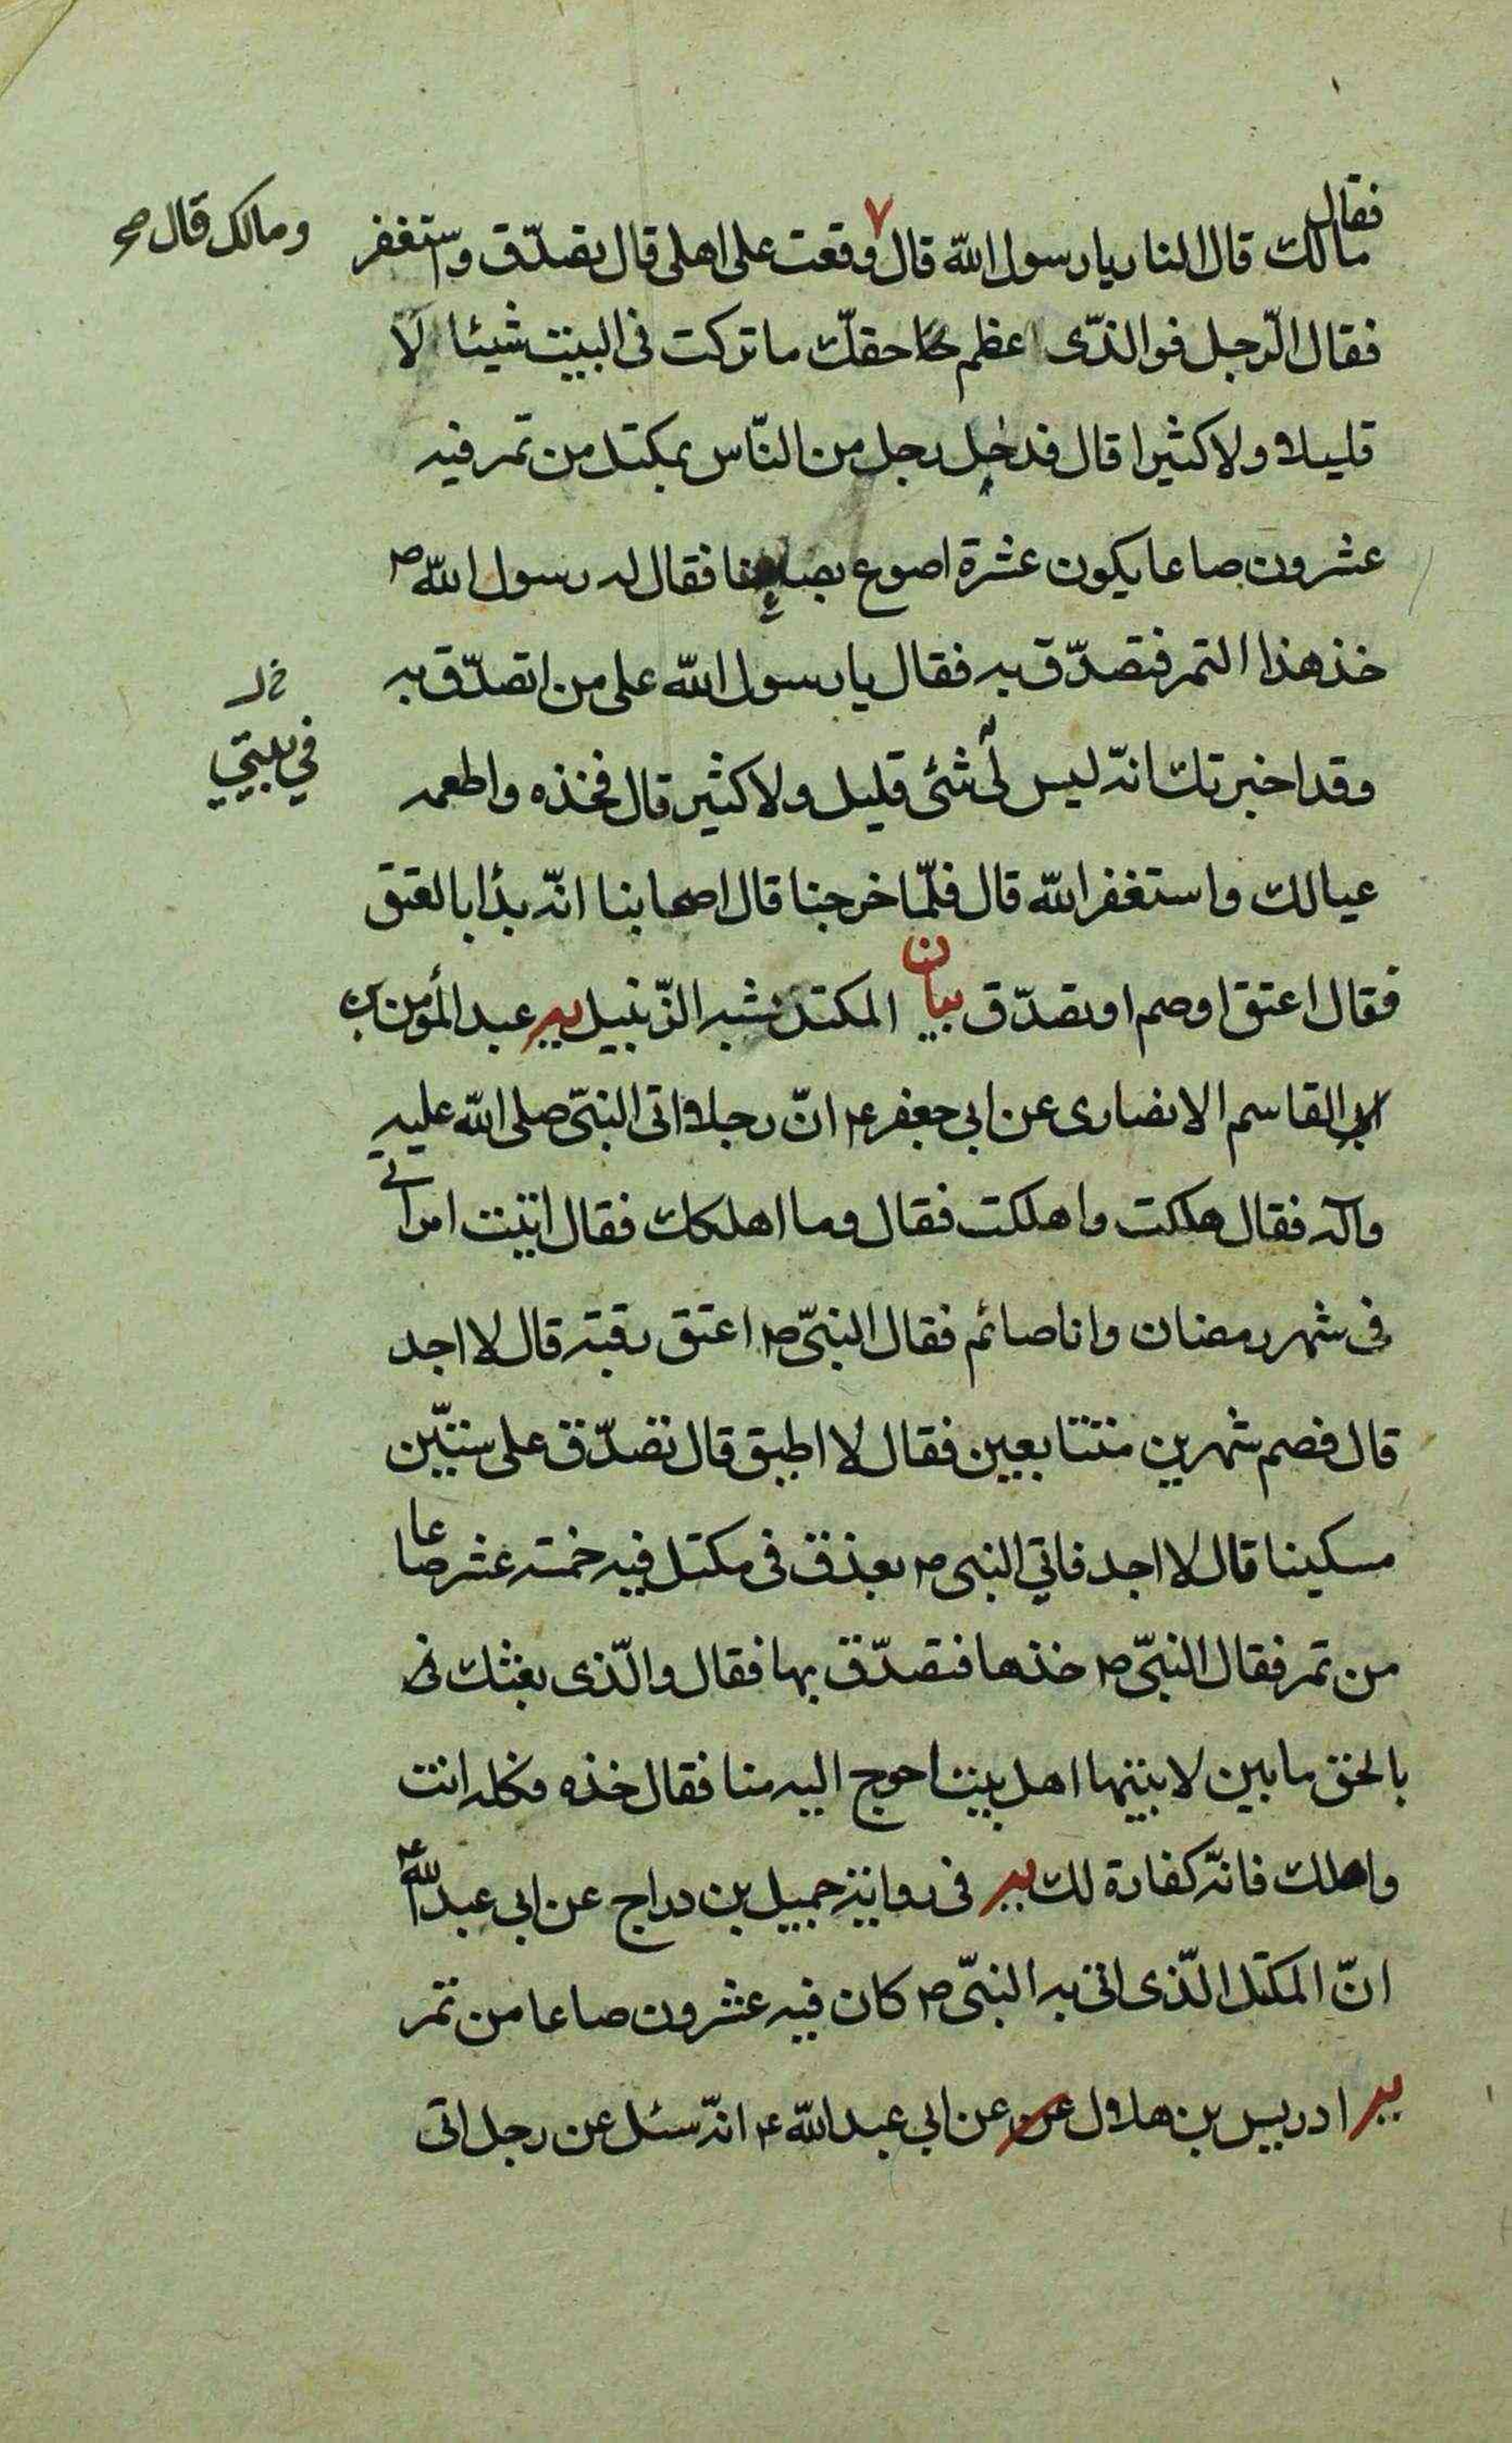 فقال
مالك قال النار يا رسول الله قال وقعت على اهلى قال تصدّق واستغفر
ومالك قال صح
فقال الرّجل فوالذّى اعظم حقك ما تركت فى البيت شيئا لا
قليلا ولا كثيرا قال فدخل رجل من النّاس بمكتل من تمر فيه
عشرون صاعا يكون عشرة اصوع بصاعنا فقال له رسول الله ص
خذ هذا التمر فتصدّق به فقال يا رسول الله على من اتصدّق به
فى بيتي
وقد اخبرتك انه ليس لى شئ قليل ولا كثير قال فخذه واطعمه
عيالك واستغفر الله قال فلمّا خرجنا قال اصحابنا انّه بدأ بالعتق
فقال اعتق او صم او تصدّق بيان المكتل يشبه الزّنبيل يه عبد المؤمن بن
ابى القاسم الانصارى عن ابى جعفر ع انّ رجلا اتى النبىّ صلى الله عليه
وآله فقال هلكت واهلكت فقال وما اهلكك فقال اتيت امراتى
فى شهر رمضان وانا صائم فقال النبىّ ص اعتق رقبة قال لا اجد
قال فصم شهرين متتابعين فقال لا اطيق قال تصدّق على ستّين
مسكينا قال لا اجد فاتي النبى ص بعذق فى مكتل فيه خمسة عشر صاعا
من تمر فقال النبىّ ص خذها فتصدّق بها فقال والّذى بعثك
بالحق ما بين لابتيها اهل بيت احوج اليه منا فقال خذه وكله انت
واهلك فانّه كفارة لك يه فى رواية جميل بن دراج عن ابى عبد الله ع
انّ المكتل الّذى اتى به النبىّ ص كان فيه عشرون صاعا من تمر
يه ادريس بن هلال عن عن ابى عبد الله ع انّه سئل عن رجل اتى